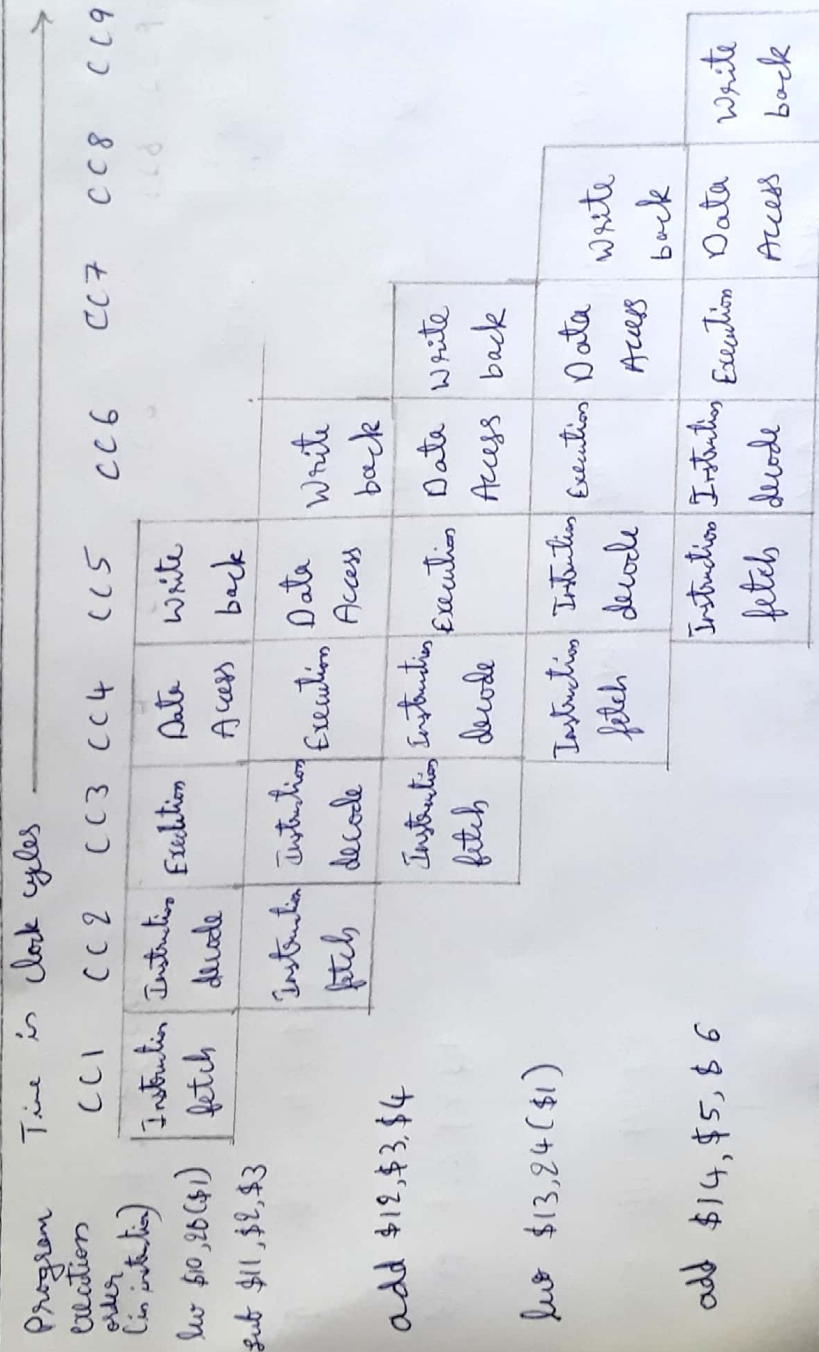 Program Time in clock cycles
execution CC1 CC2 CC3 CC4 CC5 CC6 CC7 CC8 CC9
order
(in instruction)
lw $10, 20($1) Instruction fetch Instruction decode Execution Data Access Write back
sub $11, $2, $3 Instruction fetch Instruction decode Execution Data Access Write back
add $12, $3, $4 Instruction fetch Instruction decode Execution Data Access Write back
lw $13, 24($1) Instruction fetch Instruction decode Execution Data Access Write back
add $14, $5, $6 Instruction fetch Instruction decode Execution Data Access Write back